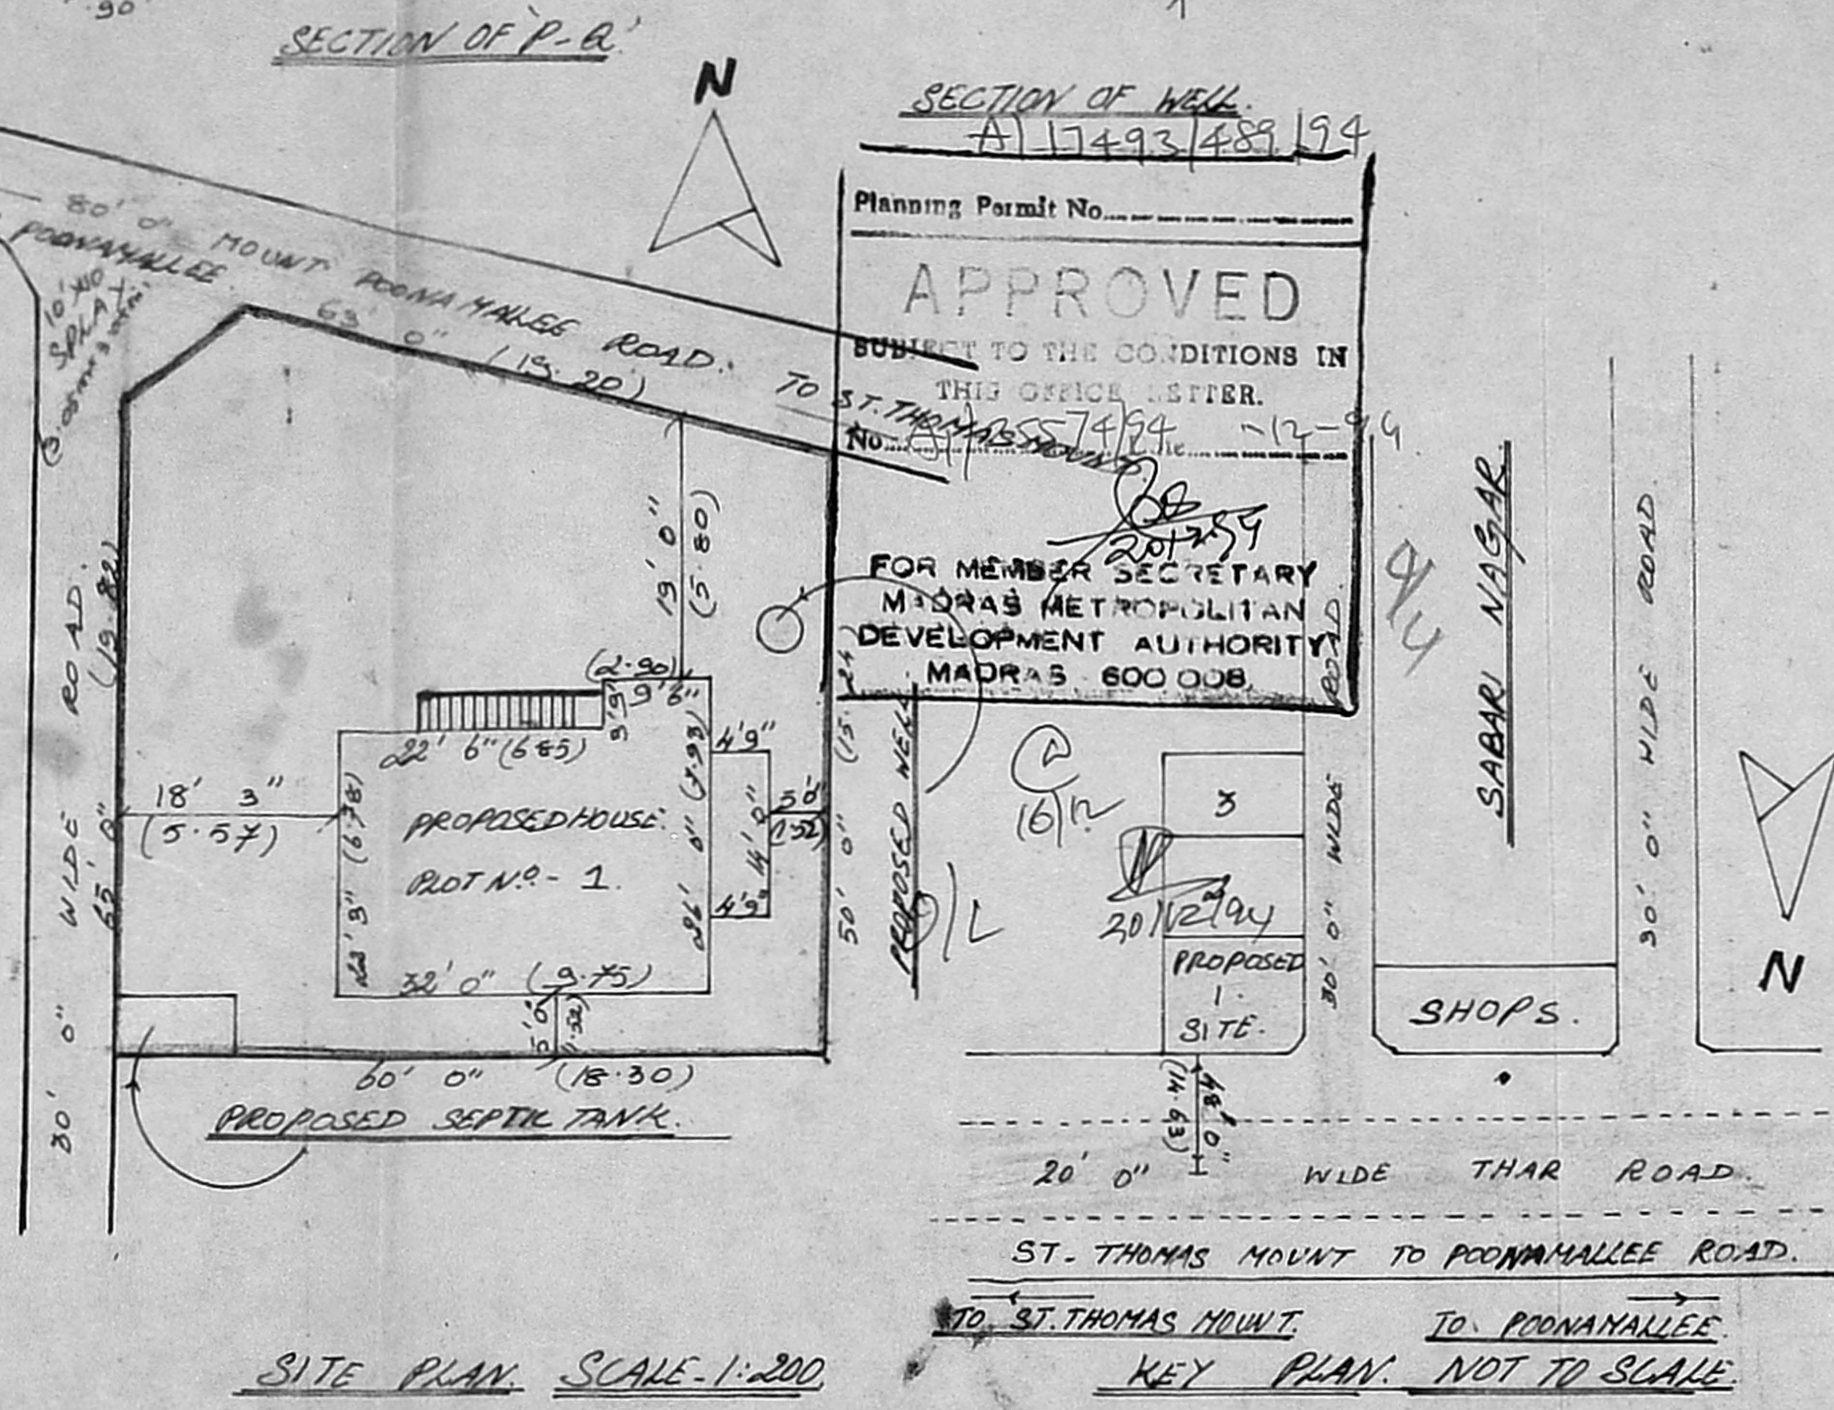 SECTION OF 'P-Q'
N
SECTION OF WELL.
A/17493/489/94
Planning Permit No.
APPROVED
SUBJECT TO THE CONDITIONS IN
THIS OFFICE LETTER.
No.
-12-94
20/12/94
FOR MEMBER SECRETARY
MADRAS METROPOLITAN
DEVELOPMENT AUTHORITY
MADRAS 600 008
80' 0" MOUNT POONAMALLEE ROAD.
POONAMALLEE
TO ST. THOMAS MOUNT
10' X 10'
SPLAY
63' 0" (19.20)
19' 0"
(5.80)
(2.90)
9' 6"
3' 9"
22' 6" (6.85)
4' 9"
26' 0" (7.93)
14' 0"
5' 0"
(1.52)
4' 9"
18' 3"
(5.57)
22' 3" (6.78)
PROPOSED HOUSE.
PLOT No - 1.
32' 0" (9.75)
5' 0"
(1.52)
30' 0" WIDE ROAD.
65' 0" (19.82)
50' 0" (15.24
PROPOSED WELL
60' 0" (18.30)
PROPOSED SEPTIC TANK.
SITE PLAN. SCALE-1:200.
16/12
3
2
20/12/94
PROPOSED
1.
SITE.
30' 0" WIDE ROAD.
SABARI NAGAR
30' 0" WIDE ROAD.
SHOPS.
N
48' 0"
(14.63)
20' 0" WIDE THAR ROAD.
ST-THOMAS MOUNT TO POONAMALLEE ROAD.
TO ST. THOMAS MOUNT. TO POONAMALLEE.
KEY PLAN. NOT TO SCALE.